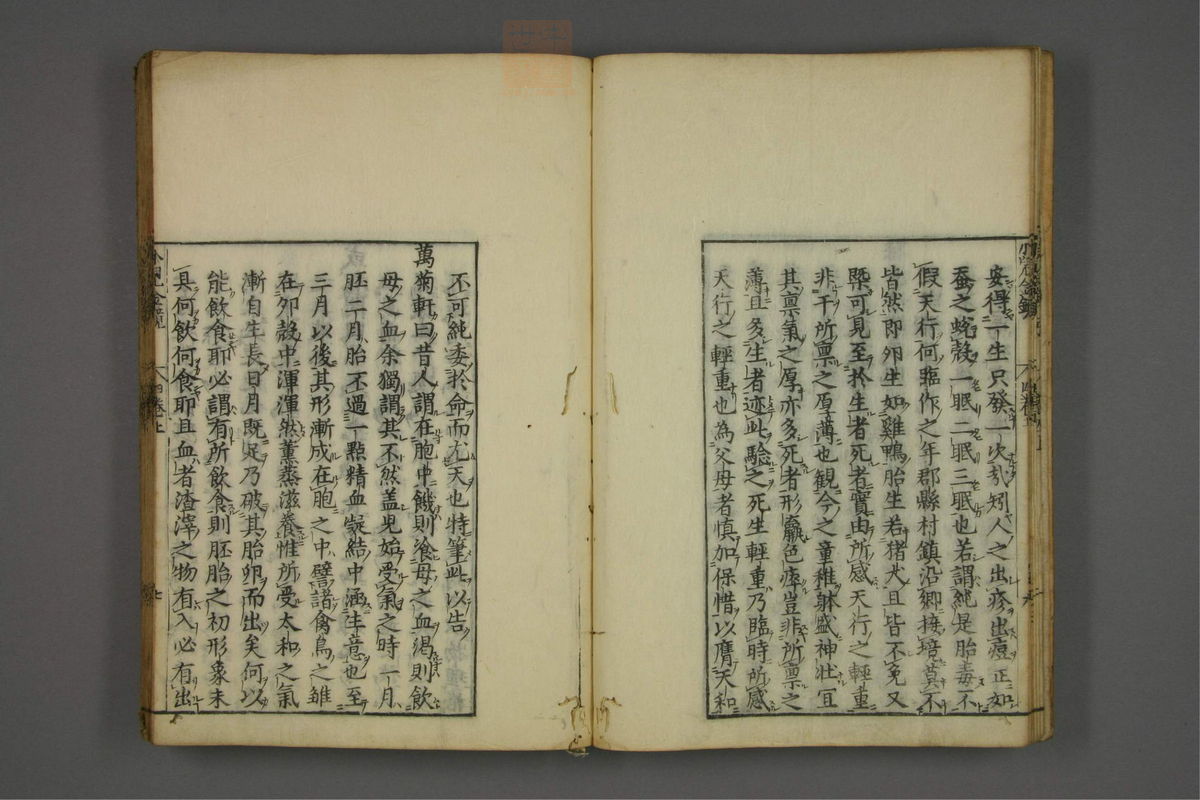 安得一生只發一次哉矧人之出疹出痘正如
蚕之蛻殼一眠二眠三眠也若謂純是胎毒不
假天行何臨作之年郡縣村鎮沿鄉接境莫不
皆然即卵生如雞鴨胎生若猪犬且皆不免又
槩可見至於生者死者實由所感天行之輕重
非干所稟之厚薄也觀今之童稚躰盛神壯宜
其稟氣之厚亦多死者形羸色瘁豈非所稟之
薄且多生者迹此驗之死生輕重乃臨時所感
天行之輕重也為父母者慎加保惜以膺天和
不可純委於命而尤天也特筆此以告
萬菊軒曰昔人謂在胞中饑則飡母之血渴則飲
母之血余獨謂其不然盖兒始受氣之時一月
胚二月胎不過一點精血凝結中涵生意也至
三月以後其形漸成在胞之中譬諸禽鳥之雏
在卵殼中渾渾然薰蒸滋養惟所受太和之氣
漸自生長日月既足乃破其胎卵而出矣何以
能飲食耶必謂有所飲食則胚胎之初形象未
具何飲何食耶且血者渣滓之物有入必有出